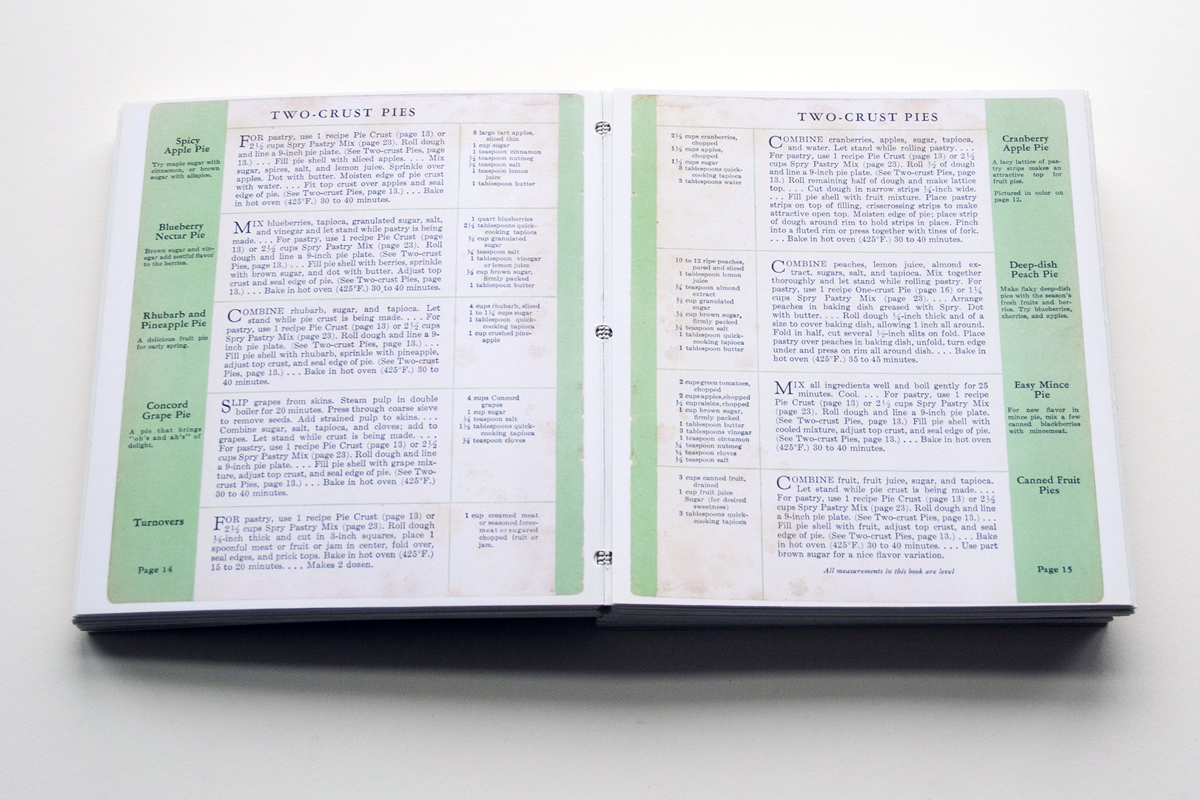 TWO-CRUST PIES
Spicy
Apple Pie
Try maple sugar with
cinnamon, or brown
sugar with allspice.
FOR pastry, use 1 recipe Pie Crust (page 13) or
2½ cups Spry Pastry Mix (page 23). Roll dough
and line a 9-inch pie plate. (See Two-crust Pies, page
13.) . . . Fill pie shell with sliced apples. . . . Mix
sugar, spices, salt, and lemon juice. Sprinkle over
apples. Dot with butter. Moisten edge of pie crust
with water. . . . Fit top crust over apples and seal
edge of pie. (See Two-crust Pies, page 13.) . . . Bake
in hot oven (425°F.) 30 to 40 minutes.
8 large tart apples,
sliced thin
1 cup sugar
1 teaspoon cinnamon
teaspoon nutmeg
teaspoon salt
1 teaspoon lemon
juice
1 tablespoon butter
Blueberry
Nectar Pie
Brown sugar and vin-
egar add zestful flavor
to the berries.
MIX blueberries, tapioca, granulated sugar, salt,
and vinegar and let stand while pastry is being
made. . . . For pastry, use 1 recipe Pie Crust (page
13) or 2½ cups Spry Pastry Mix (page 23). Roll
dough and line a 9-inch pie plate. (See Two-crust
Pies, page 13.) . . . Fill pie shell with berries, sprinkle
with brown sugar, and dot with butter. Adjust top
crust and seal edge of pie. (See Two-crust Pies, page
13.) . . . Bake in hot oven (425°F.) 30 to 40 minutes.
1 quart blueberries
2½ tablespoons quick-
cooking tapioca
cup granulated
sugar
teaspoon salt
1 tablespoon vinegar
or lemon juice
cup brown sugar,
firmly packed
1 tablespoon butter
Rhubarb and
Pineapple Pie
A delicious fruit pie
for early spring.
COMBINE rhubarb, sugar, and tapioca. Let
stand while pie crust is being made. . . . For
pastry, use 1 recipe Pie Crust (page 13) or 2½ cups
Spry Pastry Mix (page 23). Roll dough and line a 9-
inch pie plate. (See Two-crust Pies, page 13.) . . .
Fill pie shell with rhubarb, sprinkle with pineapple,
adjust top crust, and seal edge of pie. (See Two-crust
Pies, page 13.) . . . Bake in hot oven (425°F.) 30 to
40 minutes.
4 cups rhubarb, sliced
1 to 1¼ cups sugar
1 tablespoon quick-
cooking tapioca
1 cup crushed pine-
apple
Concord
Grape Pie
A pie that brings
"oh's and ah's" of
delight.
SLIP grapes from skins. Steam pulp in double
boiler for 20 minutes. Press through coarse sieve
to remove seeds. Add strained pulp to skins. . . .
Combine sugar, salt, tapioca, and cloves; add to
grapes. Let stand while crust is being made. . . .
For pastry, use 1 recipe Pie Crust (page 13) or 2½
cups Spry Pastry Mix (page 23). Roll dough and line
a 9-inch pie plate. . . . Fill pie shell with grape mix-
ture, adjust top crust, and seal edge of pie. (See Two-
crust Pies, page 13.) . . . Bake in hot oven (425°F.)
30 to 40 minutes.
4 cups Concord
grapes
1 cup sugar
teaspoon salt
1½ tablespoons quick-
cooking tapioca
teaspoon cloves
Turnovers
FOR pastry, use 1 recipe Pie Crust (page 13) or
2½ cups Spry Pastry Mix (page 23). Roll dough
-inch thick and cut in 3-inch squares, place 1
spoonful meat or fruit or jam in center, fold over,
seal edges, and prick tops. Bake in hot oven (425°F.)
15 to 20 minutes. . . . Makes 2 dozen.
1 cup creamed meat
or seasoned force-
meat or sugared
chopped fruit or
jam.
Page 14
TWO-CRUST PIES
2½ cups cranberries,
chopped
1½ cups apples,
chopped
1½ cups sugar
3 tablespoons quick-
cooking tapioca
3 tablespoons water
COMBINE cranberries, apples, sugar, tapioca,
and water. Let stand while rolling pastry. . . .
For pastry, use 1 recipe Pie Crust (page 13) or 2½
cups Spry Pastry Mix (page 23). Roll ½ of dough
and line a 9-inch pie plate. (See Two-crust Pies, page
13.) Roll remaining half of dough and make lattice
top. . . . Cut dough in narrow strips -inch wide.
. . . Fill pie shell with fruit mixture. Place pastry
strips on top of filling, crisscrossing strips to make
attractive open top. Moisten edge of pie; place strip
of dough around rim to hold strips in place. Pinch
into a fluted rim or press together with tines of fork.
. . . Bake in hot oven (425°F.) 30 to 40 minutes.
Cranberry
Apple Pie
A lacy lattice of pas-
try strips makes an
attractive top for
fruit pies.
Pictured in color on
page 12.
10 to 12 ripe peaches,
pared and sliced
1 tablespoon lemon
juice
teaspoon almond
extract
cup granulated
sugar
cup brown sugar,
firmly packed
teaspoon salt
1 tablespoon quick-
cooking tapioca
1 tablespoon butter
COMBINE peaches, lemon juice, almond ex-
tract, sugars, salt, and tapioca. Mix together
thoroughly and let stand while rolling pastry. For
pastry, use 1 recipe One-crust Pie (page 16) or 1¼
cups Spry Pastry Mix (page 23). . . . Arrange
peaches in baking dish greased with Spry. Dot
with butter. . . . Roll dough -inch thick and of a
size to cover baking dish, allowing 1 inch all around.
Fold in half, cut several -inch slits on fold. Place
pastry over peaches in baking dish, unfold, turn edge
under and press on rim all around dish. . . . Bake in
hot oven (425°F.) 35 to 45 minutes.
Deep-dish
Peach Pie
Make flaky deep-dish
pies with the season's
fresh fruits and ber-
ries. Try blueberries,
cherries, and apples.
2 cups green tomatoes,
chopped
2 cups apples, chopped
cup raisins, chopped
1 cup brown sugar,
firmly packed
1 tablespoon butter
3 tablespoons vinegar
1 teaspoon cinnamon
teaspoon nutmeg
teaspoon cloves
teaspoon salt
MIX all ingredients well and boil gently for 25
minutes. Cool. . . . For pastry, use 1 recipe
Pie Crust (page 13) or 2½ cups Spry Pastry Mix
(page 23). Roll dough and line a 9-inch pie plate.
(See Two-crust Pies, page 13.) Fill pie shell with
cooled mixture, adjust top crust, and seal edge of pie.
(See Two-crust Pies, page 13.) . . . Bake in hot oven
(425°F.) 30 to 40 minutes.
Easy Mince
Pie
For new flavor in
mince pie, mix a few
canned blackberries
with mincemeat.
3 cups canned fruit,
drained
1 cup fruit juice
Sugar (for desired
sweetness)
3 tablespoons quick-
cooking tapioca
COMBINE fruit, fruit juice, sugar, and tapioca.
Let stand while pie crust is being made. . . .
For pastry, use 1 recipe Pie Crust (page 13) or 2½
cups Spry Pastry Mix (page 23). Roll dough and line
a 9-inch pie plate. (See Two-crust Pies, page 13.) . . .
Fill pie shell with fruit, adjust top crust, and seal
edge of pie. (See Two-crust Pies, page 13.) . . . Bake
in hot oven (425°F.) 30 to 40 minutes. . . . Use part
brown sugar for a nice flavor variation.
Canned Fruit
Pies
All measurements in this book are level
Page 15